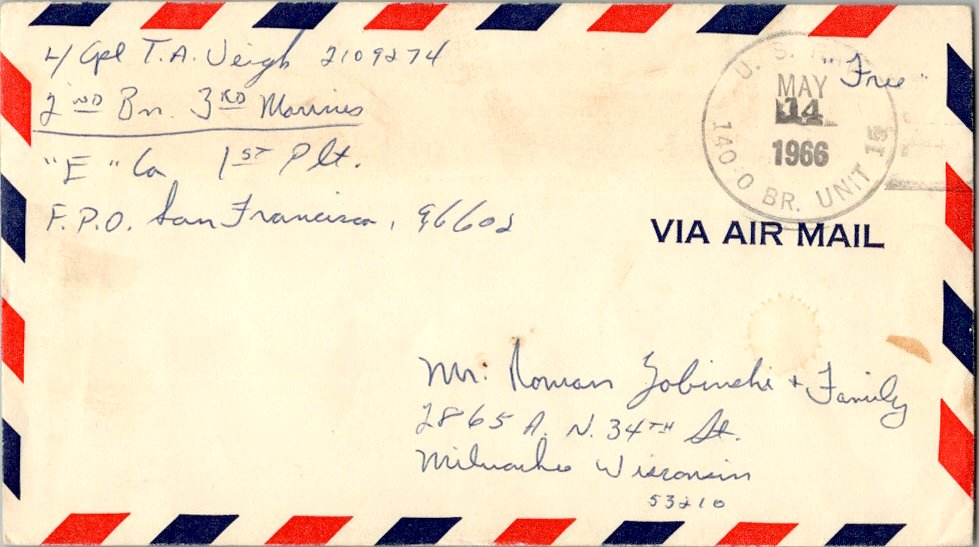 L/Cpl T.A. Veigh 2109274
2ND Bn. 3RD Marines
"E" Co 1ST Plt.
F.P.O. San Francisco, 96602
U. S.
MAY
14
1966
BR. UNIT 15
"Free"
VIA AIR MAIL
Mr. Roman & Family
2865 A. N. 34TH St.
Milwaukee Wisconsin
53210